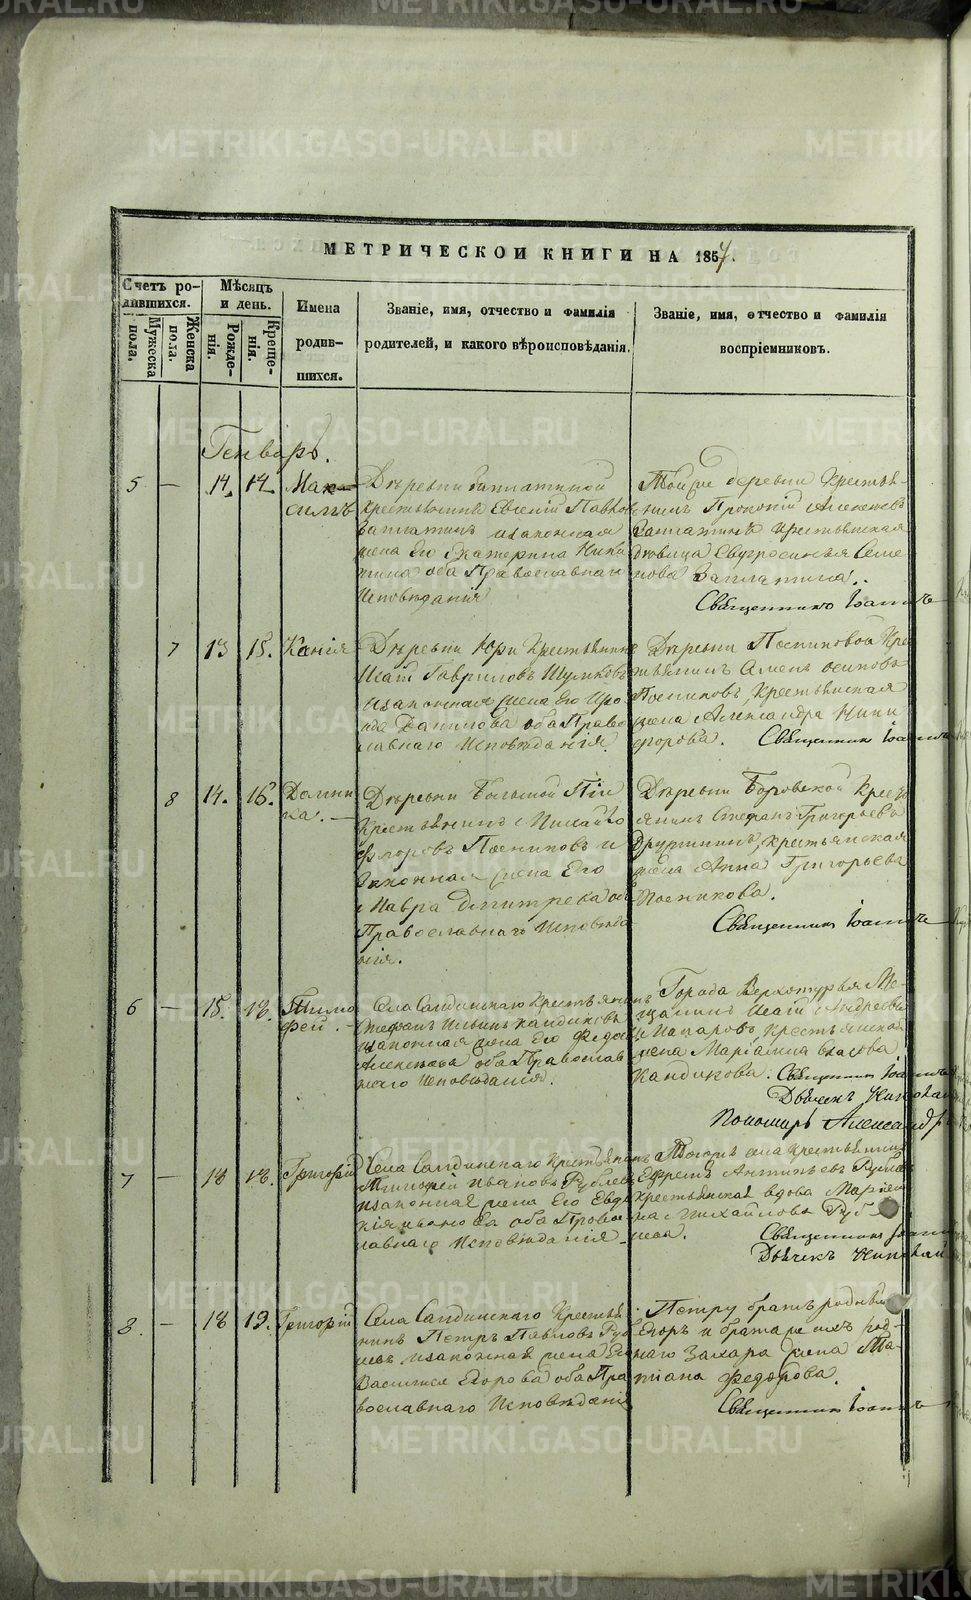 МЕТРИЧЕСКОЙ КНИГИ НА 1857.
Счетъ ро-
дившихся.
Мужеска
пола.
Женска
пола.
Мѣсяцъ
и день.
Рожде-
нія.
Креще-
нія.
Имена
родив-
шихся.
Званіе, имя, отчество и фамилія
родителей, и какого вѣроисповѣданія.
Званіе, имя, отчество и фамилія
воспріемниковъ.
Генварь.
5 — 14. 14. Мак-
симъ
Деревни Заплатиной
крестьянинъ Евгеній Павлов
Заплатинъ изаконная
жена Его Екатерина Ники
тина оба Православнаг
Исповѣданія
Той же деревни Крестья-
нинъ Прокопій Алексѣевъ
Заплатинъ Крестьянская
дѣвица Евфросинья Семе
нова Заплатина.
Священникъ Іоаннъ
7 13 15. Ксенія
Деревни Юри Крестьянин
Исаія Гавриловъ Шумковъ
изаконная жена Его Ири
на Данилова оба Право
славнаго Исповѣданія.
Деревни Постниковой Кре
стьянинъ Семенъ осиповъ
Постниковъ, Крестьянская
жена Александра Ники
форова. Священникъ Іоаннъ
8 14. 16. Домни
ка. —
Деревни Большой
Крестьянинъ Михайло
Флоровъ Постниковъ и
Законная жена Его
Мавра Димитрева об
Православнаго Исповѣда
нія.
Деревни Боровской Крест
янинъ Стефанъ Григорьевъ
Дружининъ, Крестьянская
жена Анна Григорьева
Постникова.
Священникъ Іоаннъ
6 — 15. 18. Тимо
фей. —
Села Салдинскаго Крестьянин
Стефанъ Ильинъ Кандаковъ
изаконная жена Его Федос
Алексѣева оба Православ
наго Исповѣданія.
Города Верхотурья Мѣ-
щанинъ Исаія Андреевъ
Захаровъ, Крестьянская
жена Маріамна Власова
Кандакова. Священникъ Іоаннъ
Дьячекъ Николай
Пономарь Александръ
7 — 18 18. Григорій
Села Салдинскаго Крестьянин
Тимофей Ивановъ Рублевъ
изаконная жена Его Евдо
кія иванова оба Право
славнаго Исповѣданія
Тогоже села крестьянинъ
Ефремъ Антипьевъ Рубле
Крестьянская вдова Марія
Михайлова Руб
лева.
Священникъ Іоаннъ
Дьячекъ Николай
8. — 18 19. Григорій
Села Салдинскаго Крестья
нинъ Петръ Павловъ Руб
левъ изаконная жена Его
Василиса Егорова оба Пра
вославнаго Исповѣданія
Петру братъ родный
Егоръ и брата же ихъ род-
наго Захара жена Та-
тіана Федорова.
Священникъ Іоаннъ
METRIKI.GASO-URAL.RU